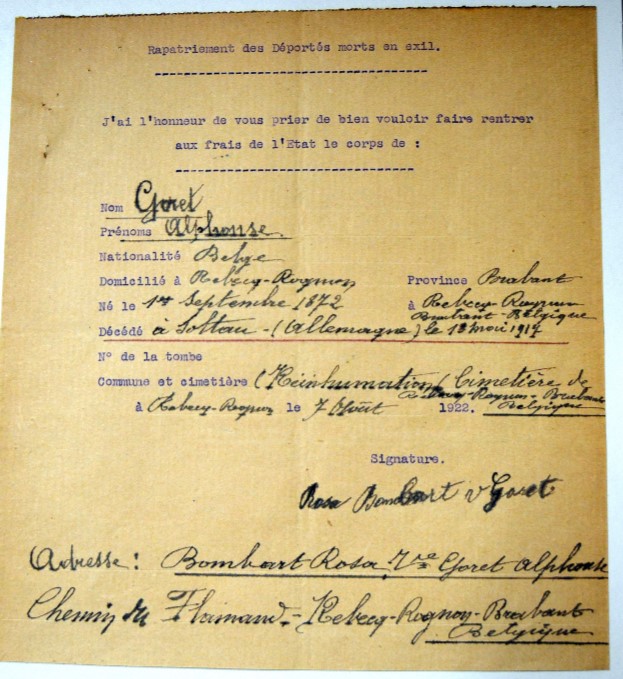 Rapatriement des Déportés morts en exil.
J'ai l'honneur de vous prier de bien vouloir faire rentrer
aux frais de l'Etat le corps de :
Nom Goret
Prénoms Alphonse.
Nationalité Belge
Domicilié à Rebecq-Rognon Province Brabant
Né le 1er Septembre 1872 à Rebecq-Rognon
Brabant-Belgique
Décédé à Soltau-(Allemagne) le 18 mai 1917
N° de la tombe
Commune et cimetière (Réinhumation) Cimetière de
Rebecq-Rognon-Brabant
à Rebecq-Rognon le 7 Août 1922. Belgique
Signature.
Rosa Bombart v Goret
Adresse: Bombart Rosa, Vve Goret Alphonse
Chemin du Flamand.-Rebecq-Rognon-Brabant
Belgique